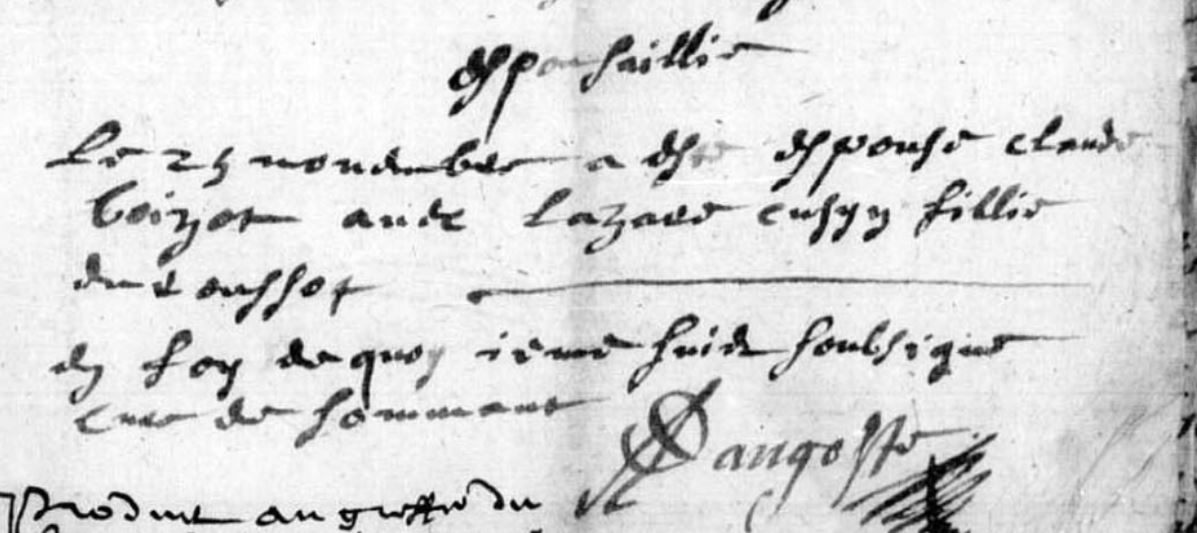 espousaillie
Le 25 novembre a este espouse claude
boizot avec Lazare cusyn fillie
du
en foy de quoy ie me suis soubsigne
cure de sommant
Dangoste
Produit au greffe du